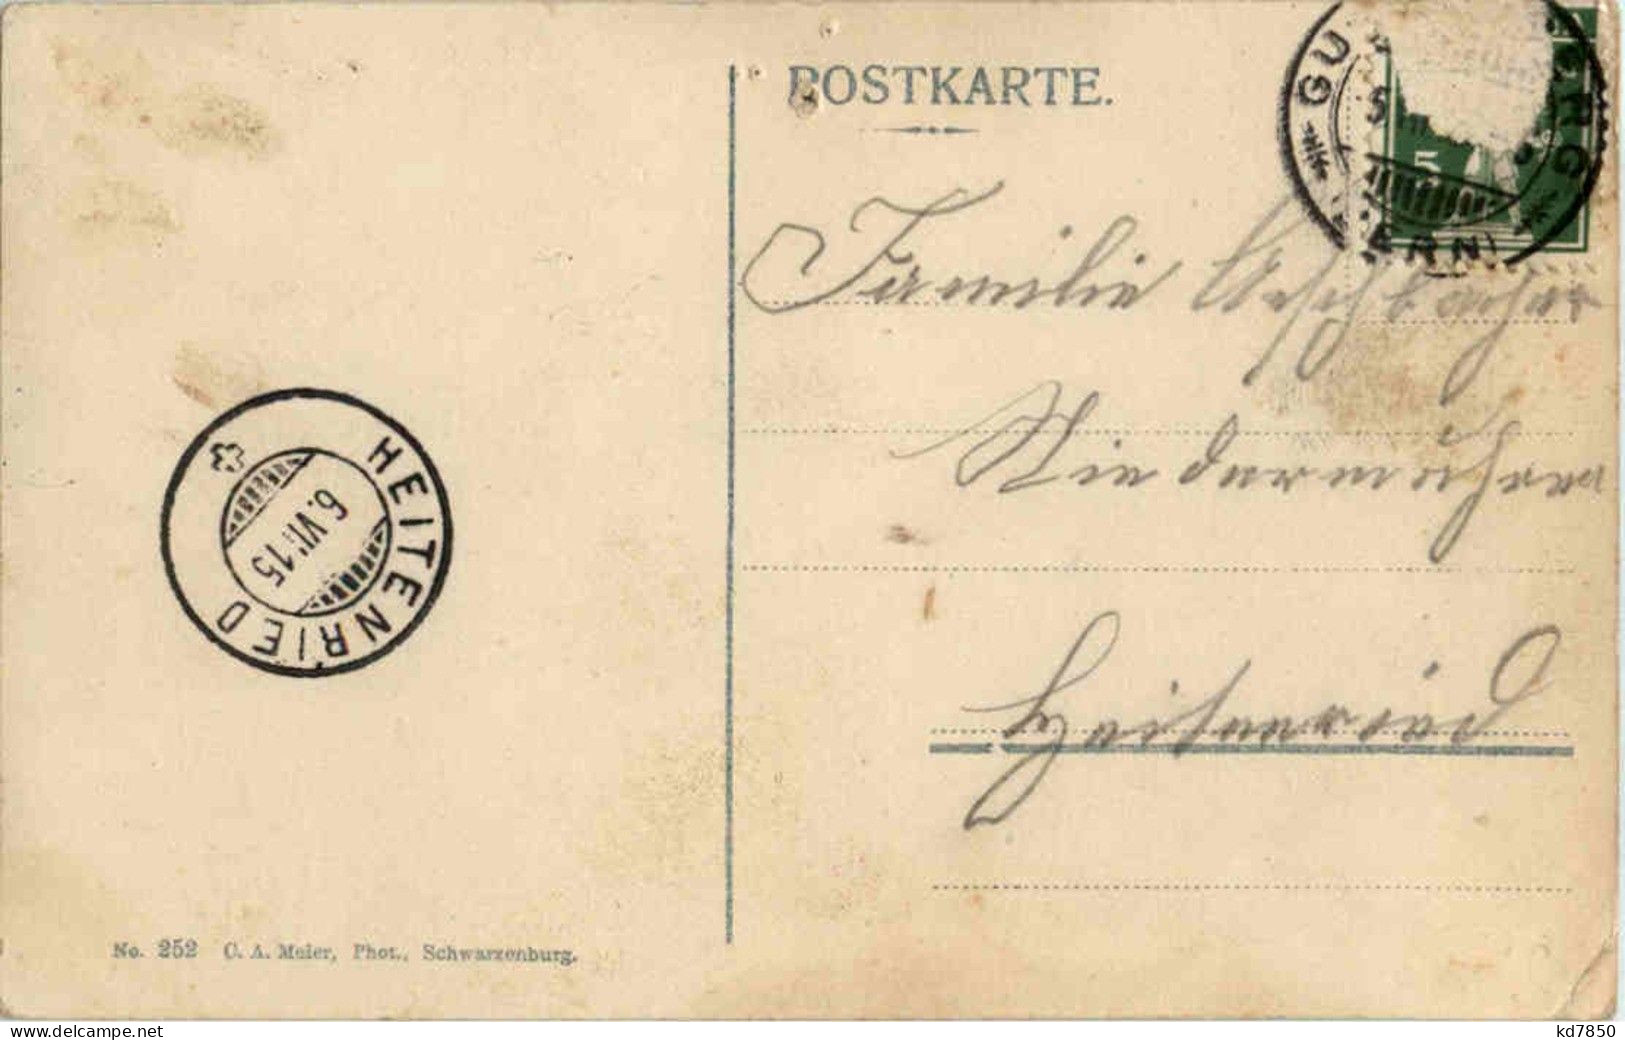 POSTKARTE.
5
Familie Aeschbacher
Niedermuhren
Heitenried
HEITENRIED
6.VII.15
No. 252 C. A. Meier, Phot., Schwarzenburg.
www.delcampe.net
kd7850